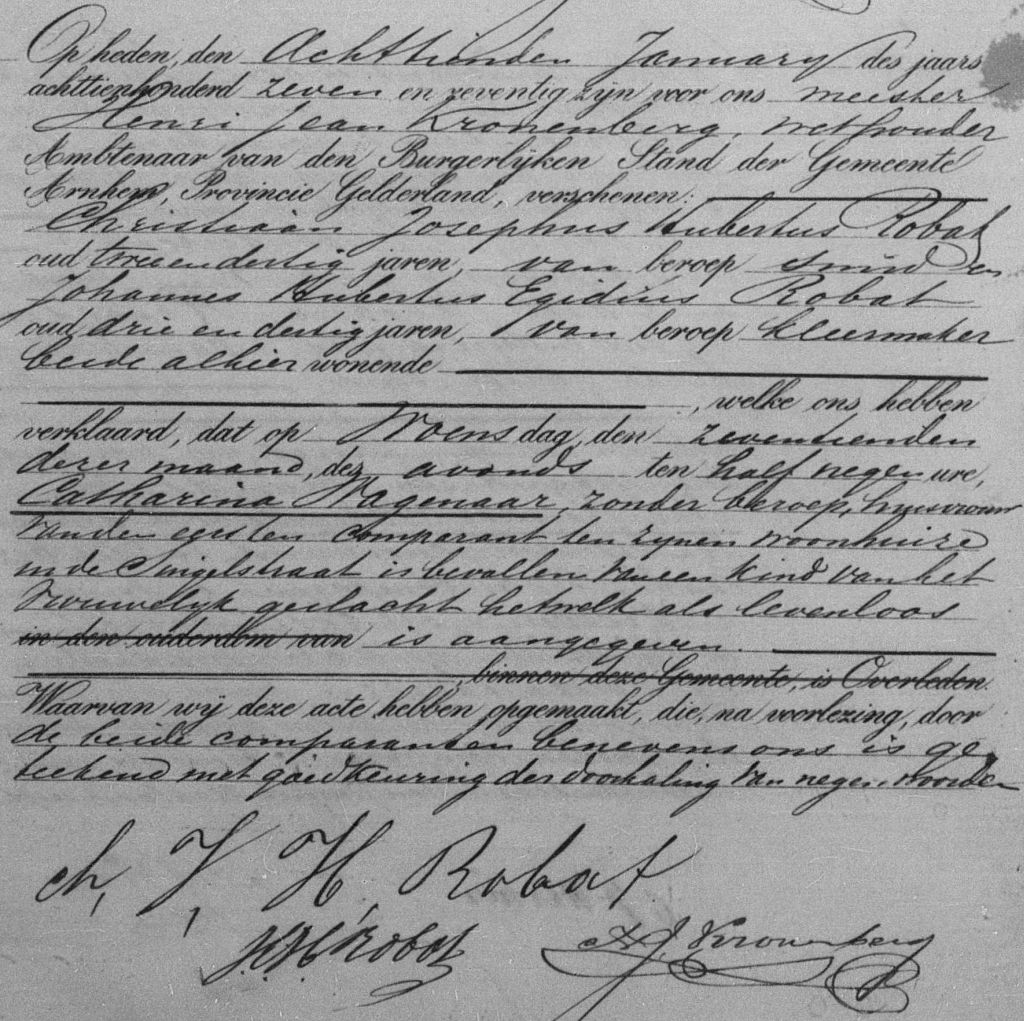 Op heden, den Achttienden January des jaars
achttienhonderd zeven en zeventig zijn voor ons meester
Henri Jean Kronenberg, wethouder
Ambtenaar van den Burgerlijken Stand der Gemeente
Arnhem, Provincie Gelderland, verschenen:
Christiaan Josephus Hubertus Robat
oud twee en dertig jaren, van beroep smid en
Johannes Hubertus Egidius Robat
oud drie en dertig jaren, van beroep kleermaker
beide alhier wonende
, welke ons hebben
verklaard, dat op Woensdag, den zeventienden
dezer maand, des avonds ten half negen ure,
Catharina Wagenaar, zonder beroep, huisvrouw
van den eersten comparant ten zynen woonhuize
in de Singelstraat is bevallen van een kind van het
vrouwelyk geslacht hetwelk als levenloos
in den ouderdom van is aangegeven.
, binnen deze Gemeente, is Overleden.
Waarvan wij deze acte hebben opgemaakt, die, na voorlezing, door
de beide comparanten benevens ons is ge
teekend met goedkeuring der doorhaling van negen woorden
Ch, J, H, Robat
J.H.E. Robat
H. J. Kronenberg